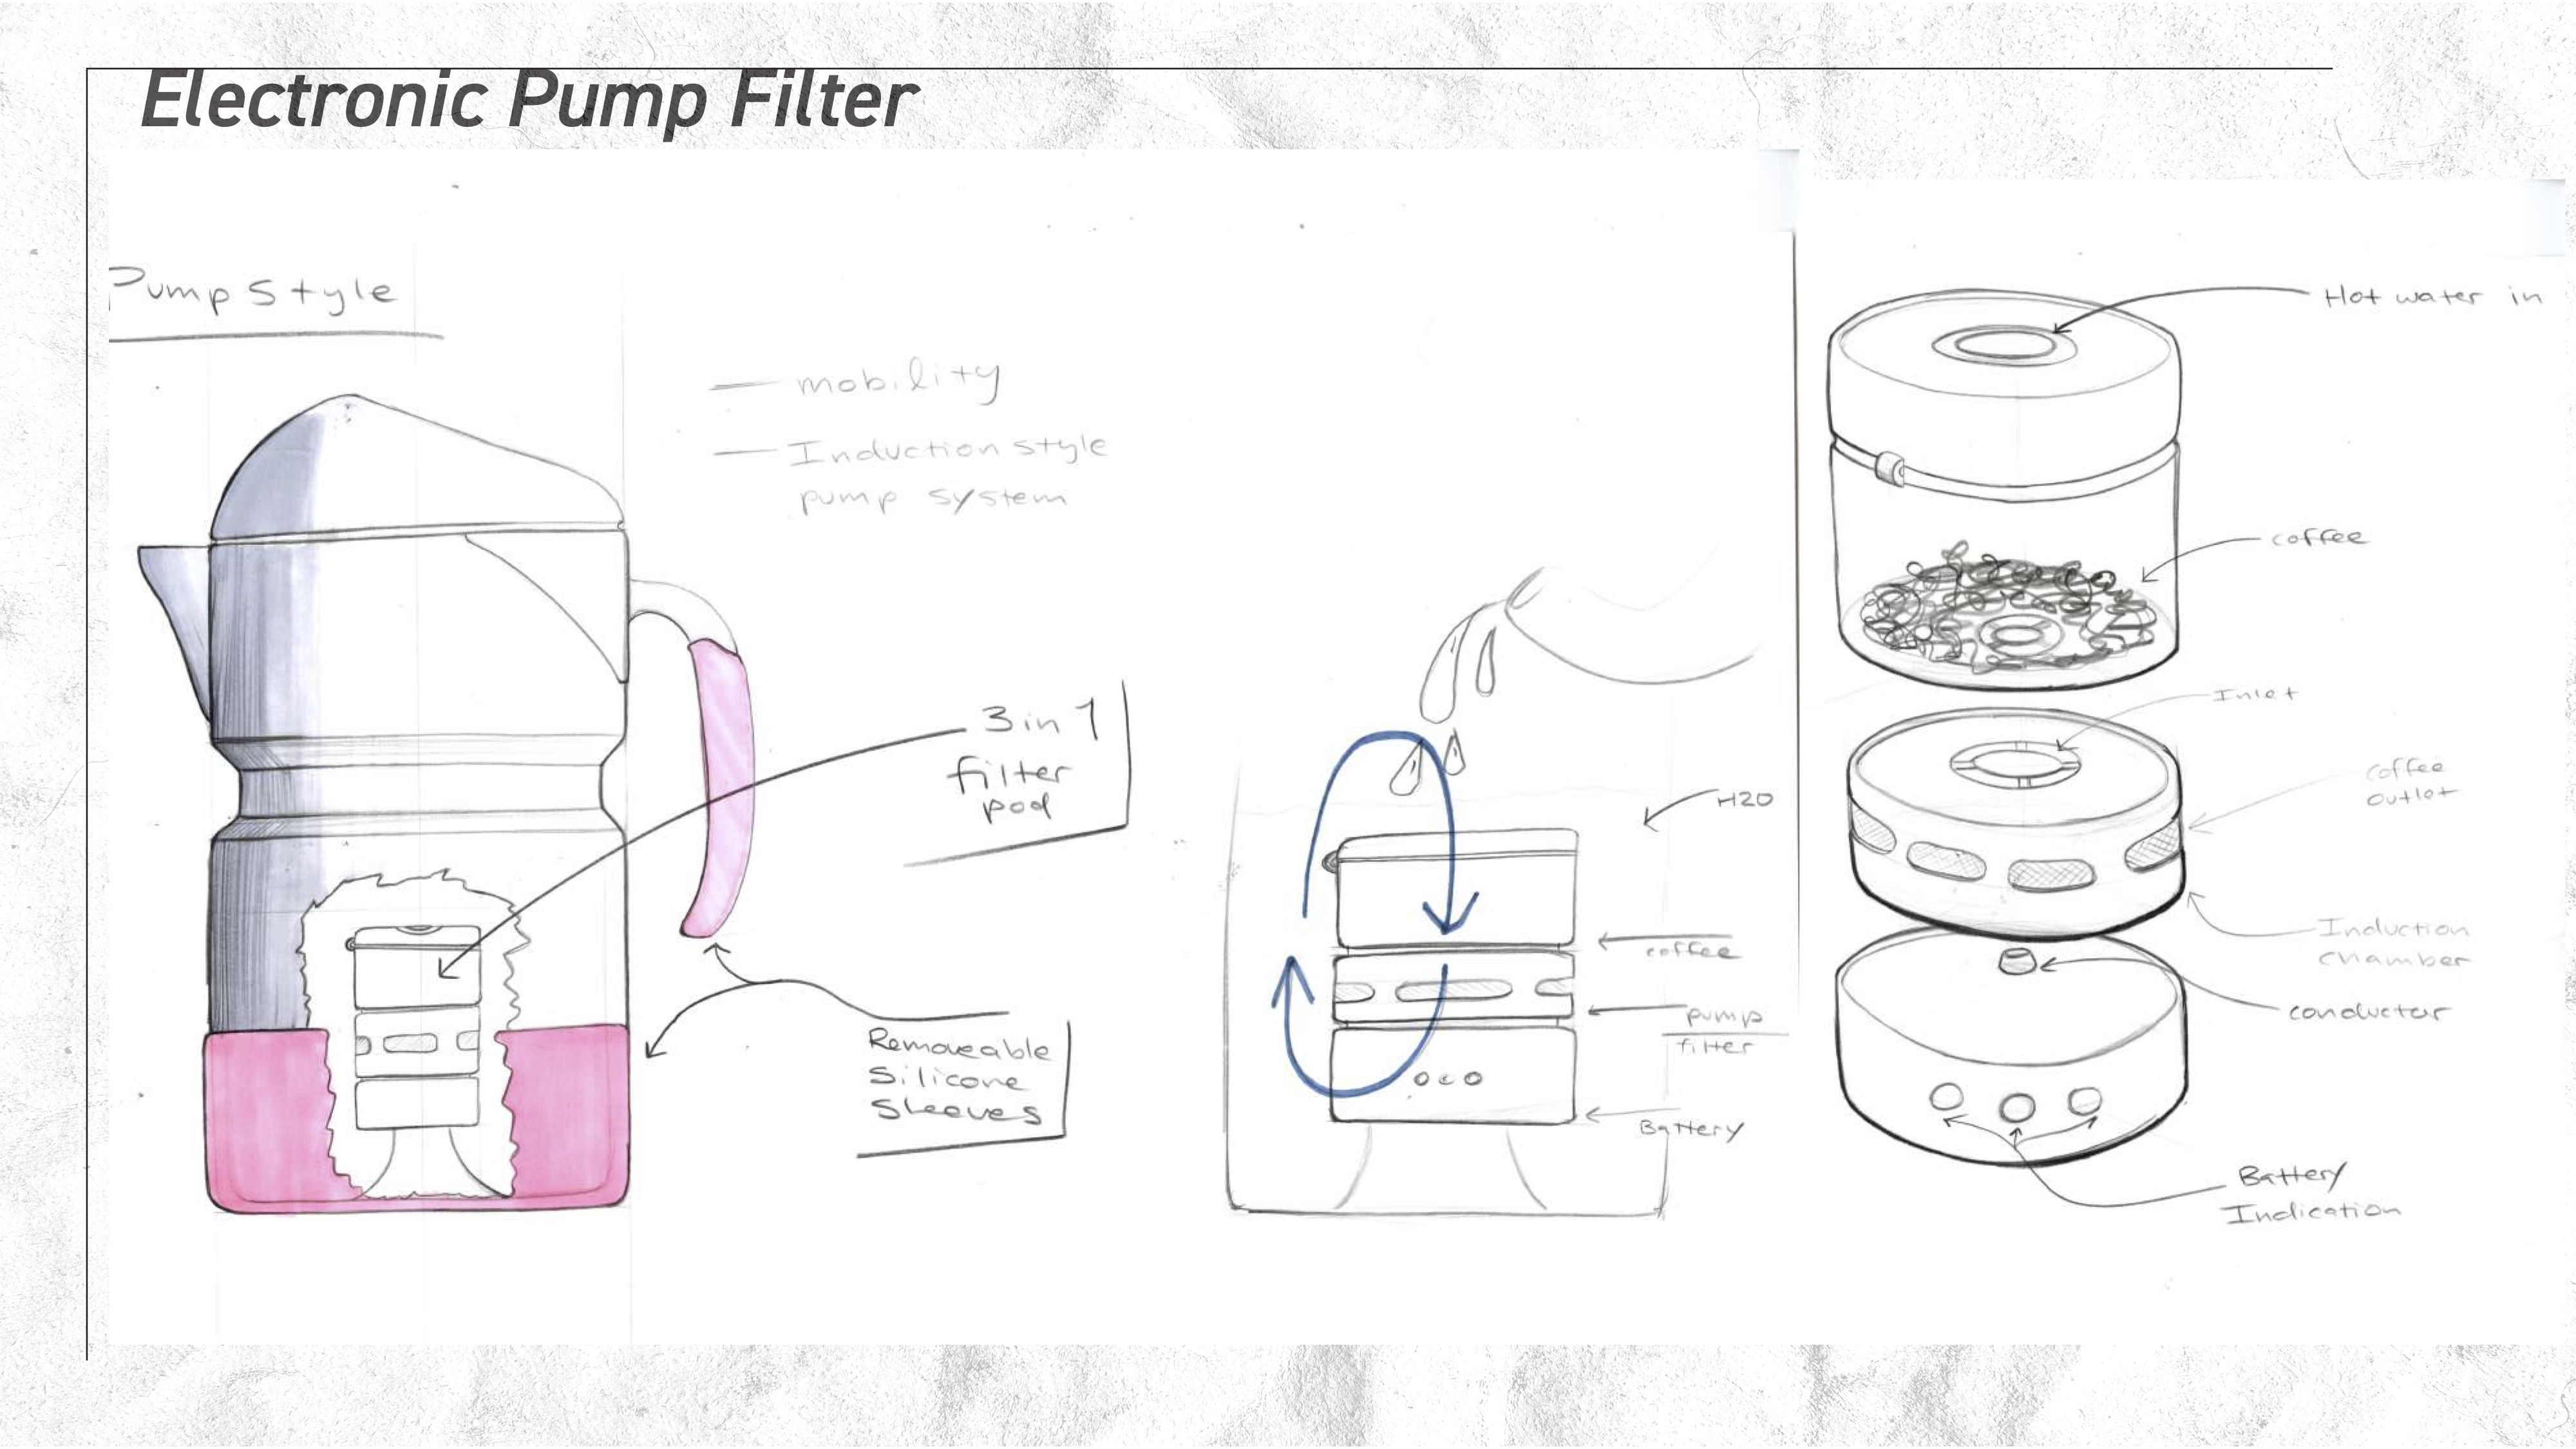 Electronic Pump Filter
Pump Style
— mobility
— Induction style
pump system
3 in 1
filter
pod
Removeable
Silicone
Sleeves
H2O
coffee
pump
filter
Battery
Hot water in
coffee
Inlet
coffee
outlet
Induction
chamber
conductor
Battery
Indication